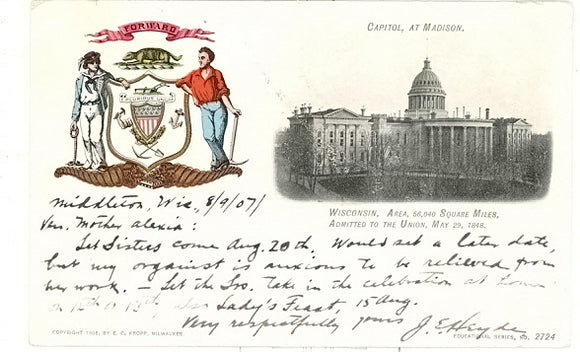 FORWARD
CAPITOL, AT MADISON.
E PLURIBUS UNUM
WISCONSIN, AREA, 56,040 SQUARE MILES,
ADMITTED TO THE UNION, MAY 29, 1848.
Middleton, Wis, 8/9/07/
Ven. Mother Alexia:
Let Sisters come Aug. 20th. Would set a later date,
but my organist is anxious to be relieved from
her work. – Let the Srs. take in the celebration at home
on or Lady's Feast, 15 Aug.
Very respectfully yours J. E. Heyde
COPYRIGHT 1905, BY E. C. KROPP, MILWAUKEE
EDUCATIONAL SERIES, NO. 2724